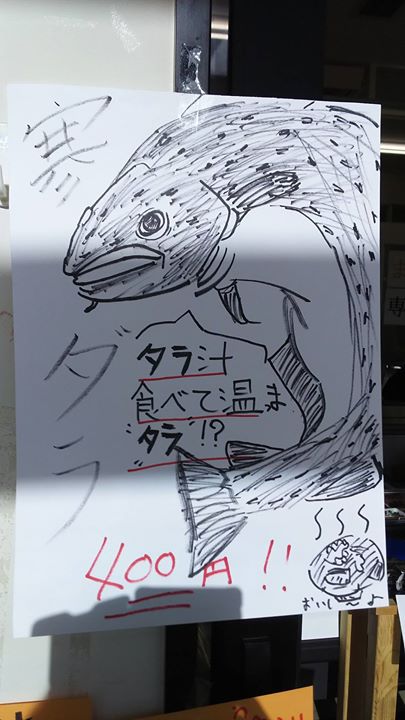 寒ダラ
タラ汁
食べて温ま
タラ!?
400円!!
おいし〜よ